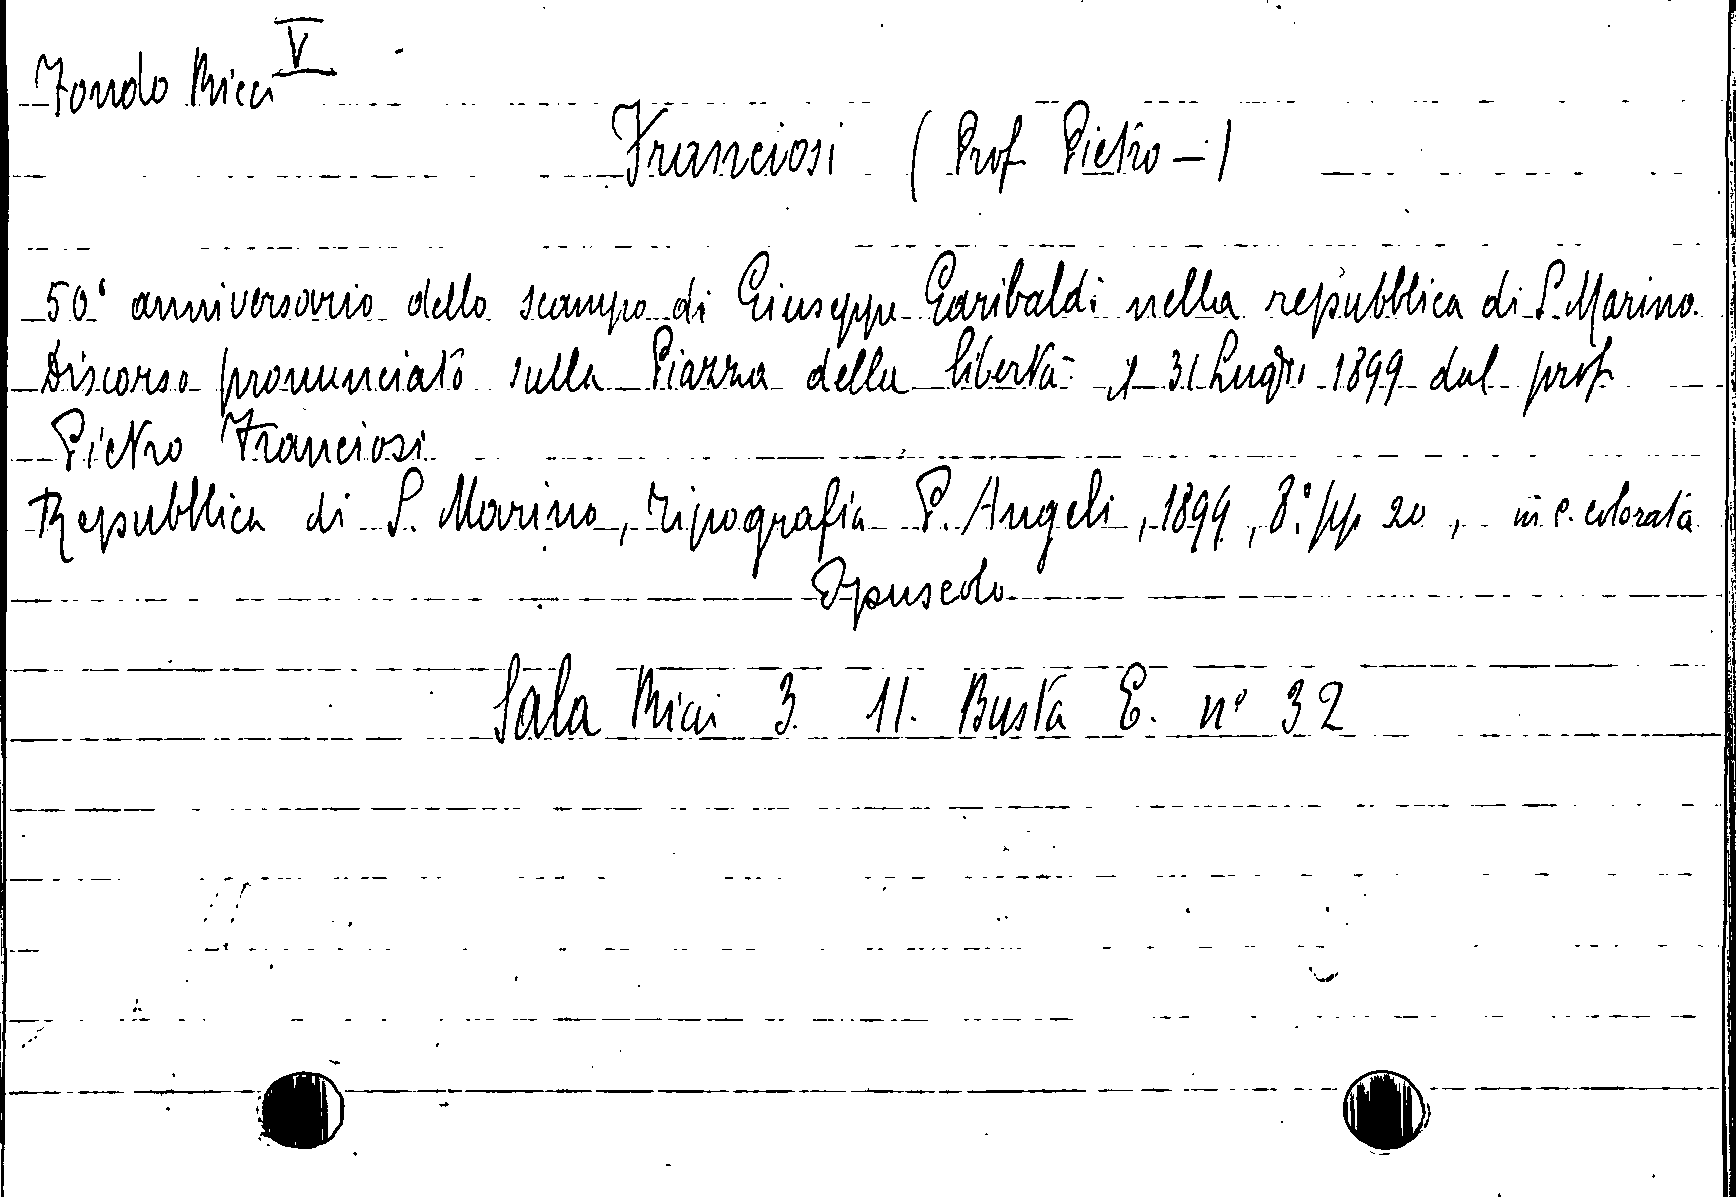 Fondo Ricci V
Franciosi (Prof Pietro -)
50° anniversario dello scampo di Giuseppe Garibaldi nella repubblica di S. Marino.
Discorso pronunciato sulla Piazza della libertà il 31 Luglio 1899 dal prof
Pietro Franciosi
Repubblica di S. Marino, Tipografia P. Angeli, 1899, 8.° pp 20, in c. colorata
Opuscolo
Sala Ricci 3. 11. Busta E. n° 32